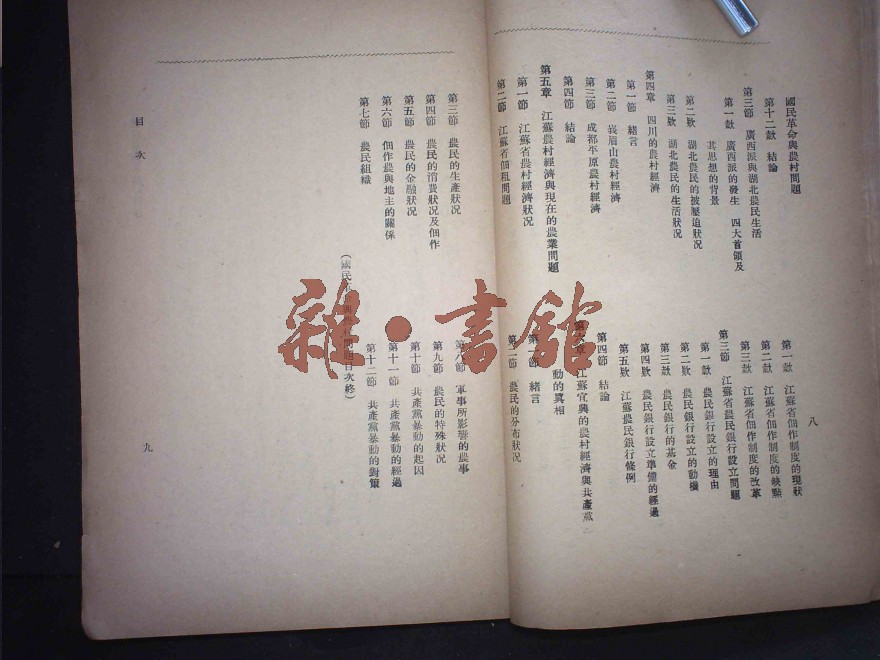 國民革命與農村問題
第十二款 結論
第三節 廣西派與湖北農民生活
第一款 廣西派的發生 四大首領及
其思想的背景
第二款 湖北農民的被壓迫狀況
第三款 湖北農民的生活狀況
第四章 四川的農村經濟
第一節 緒言
第二節 峩眉山農村經濟
第三節 成都平原農村經濟
第四節 結論
第五章 江蘇農村經濟與現在的農業問題
第一節 江蘇省農村經濟狀況
第二節 江蘇省佃租問題
八
第一款 江蘇省佃作制度的現狀
第二款 江蘇省佃作制度的缺點
第三款 江蘇省佃作制度的改革
第三節 江蘇省農民銀行設立問題
第一款 農民銀行設立的理由
第二款 農民銀行設立的動機
第三款 農民銀行的基金
第四款 農民銀行設立準備的經過
第五款 江蘇農民銀行條例
第四節 結論
第六章 江蘇宜興的農村經濟與共產黨
動的眞相
第一節 緒言
第二節 農民的分布狀況
第三節 農民的生產狀況
第四節 農民的消費狀況及佃作
第五節 農民的金融狀況
第六節 佃作農與地主的關係
第七節 農民組織
第八節 軍事所影響的農事
第九節 農民的特殊狀況
第十節 共產黨暴動的起因
第十一節 共產黨暴動的經過
第十二節 共產黨暴動的對策
(國民 問題目次終)
目次
九
雜·書館